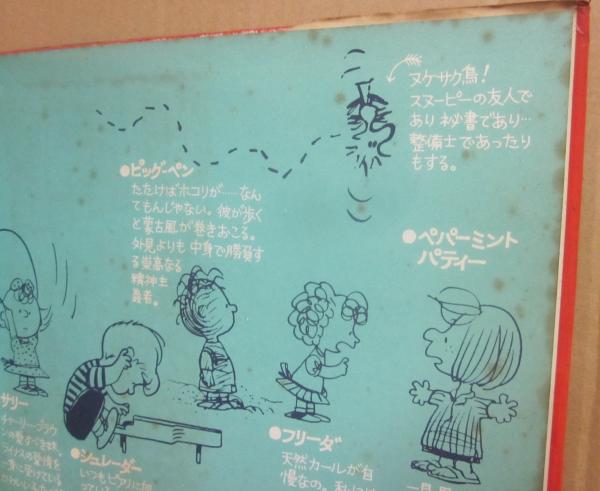 ヌケサク鳥!
スヌーピーの友人で
あり秘書であり…
整備士であったり
もする。
●ピッグ・ペン
たたけばホコリが……なん
てもんじゃない。彼が歩く
と蒙古風が巻きおこる。
外見よりも中身で勝負す
る崇高なる
精神主
義者。
●ペパーミント
パティー
サリー
チャーリー・ブラウ
●シュレーダー
いつもピアノに向
●フリーダ
天然カールが自
慢なの。